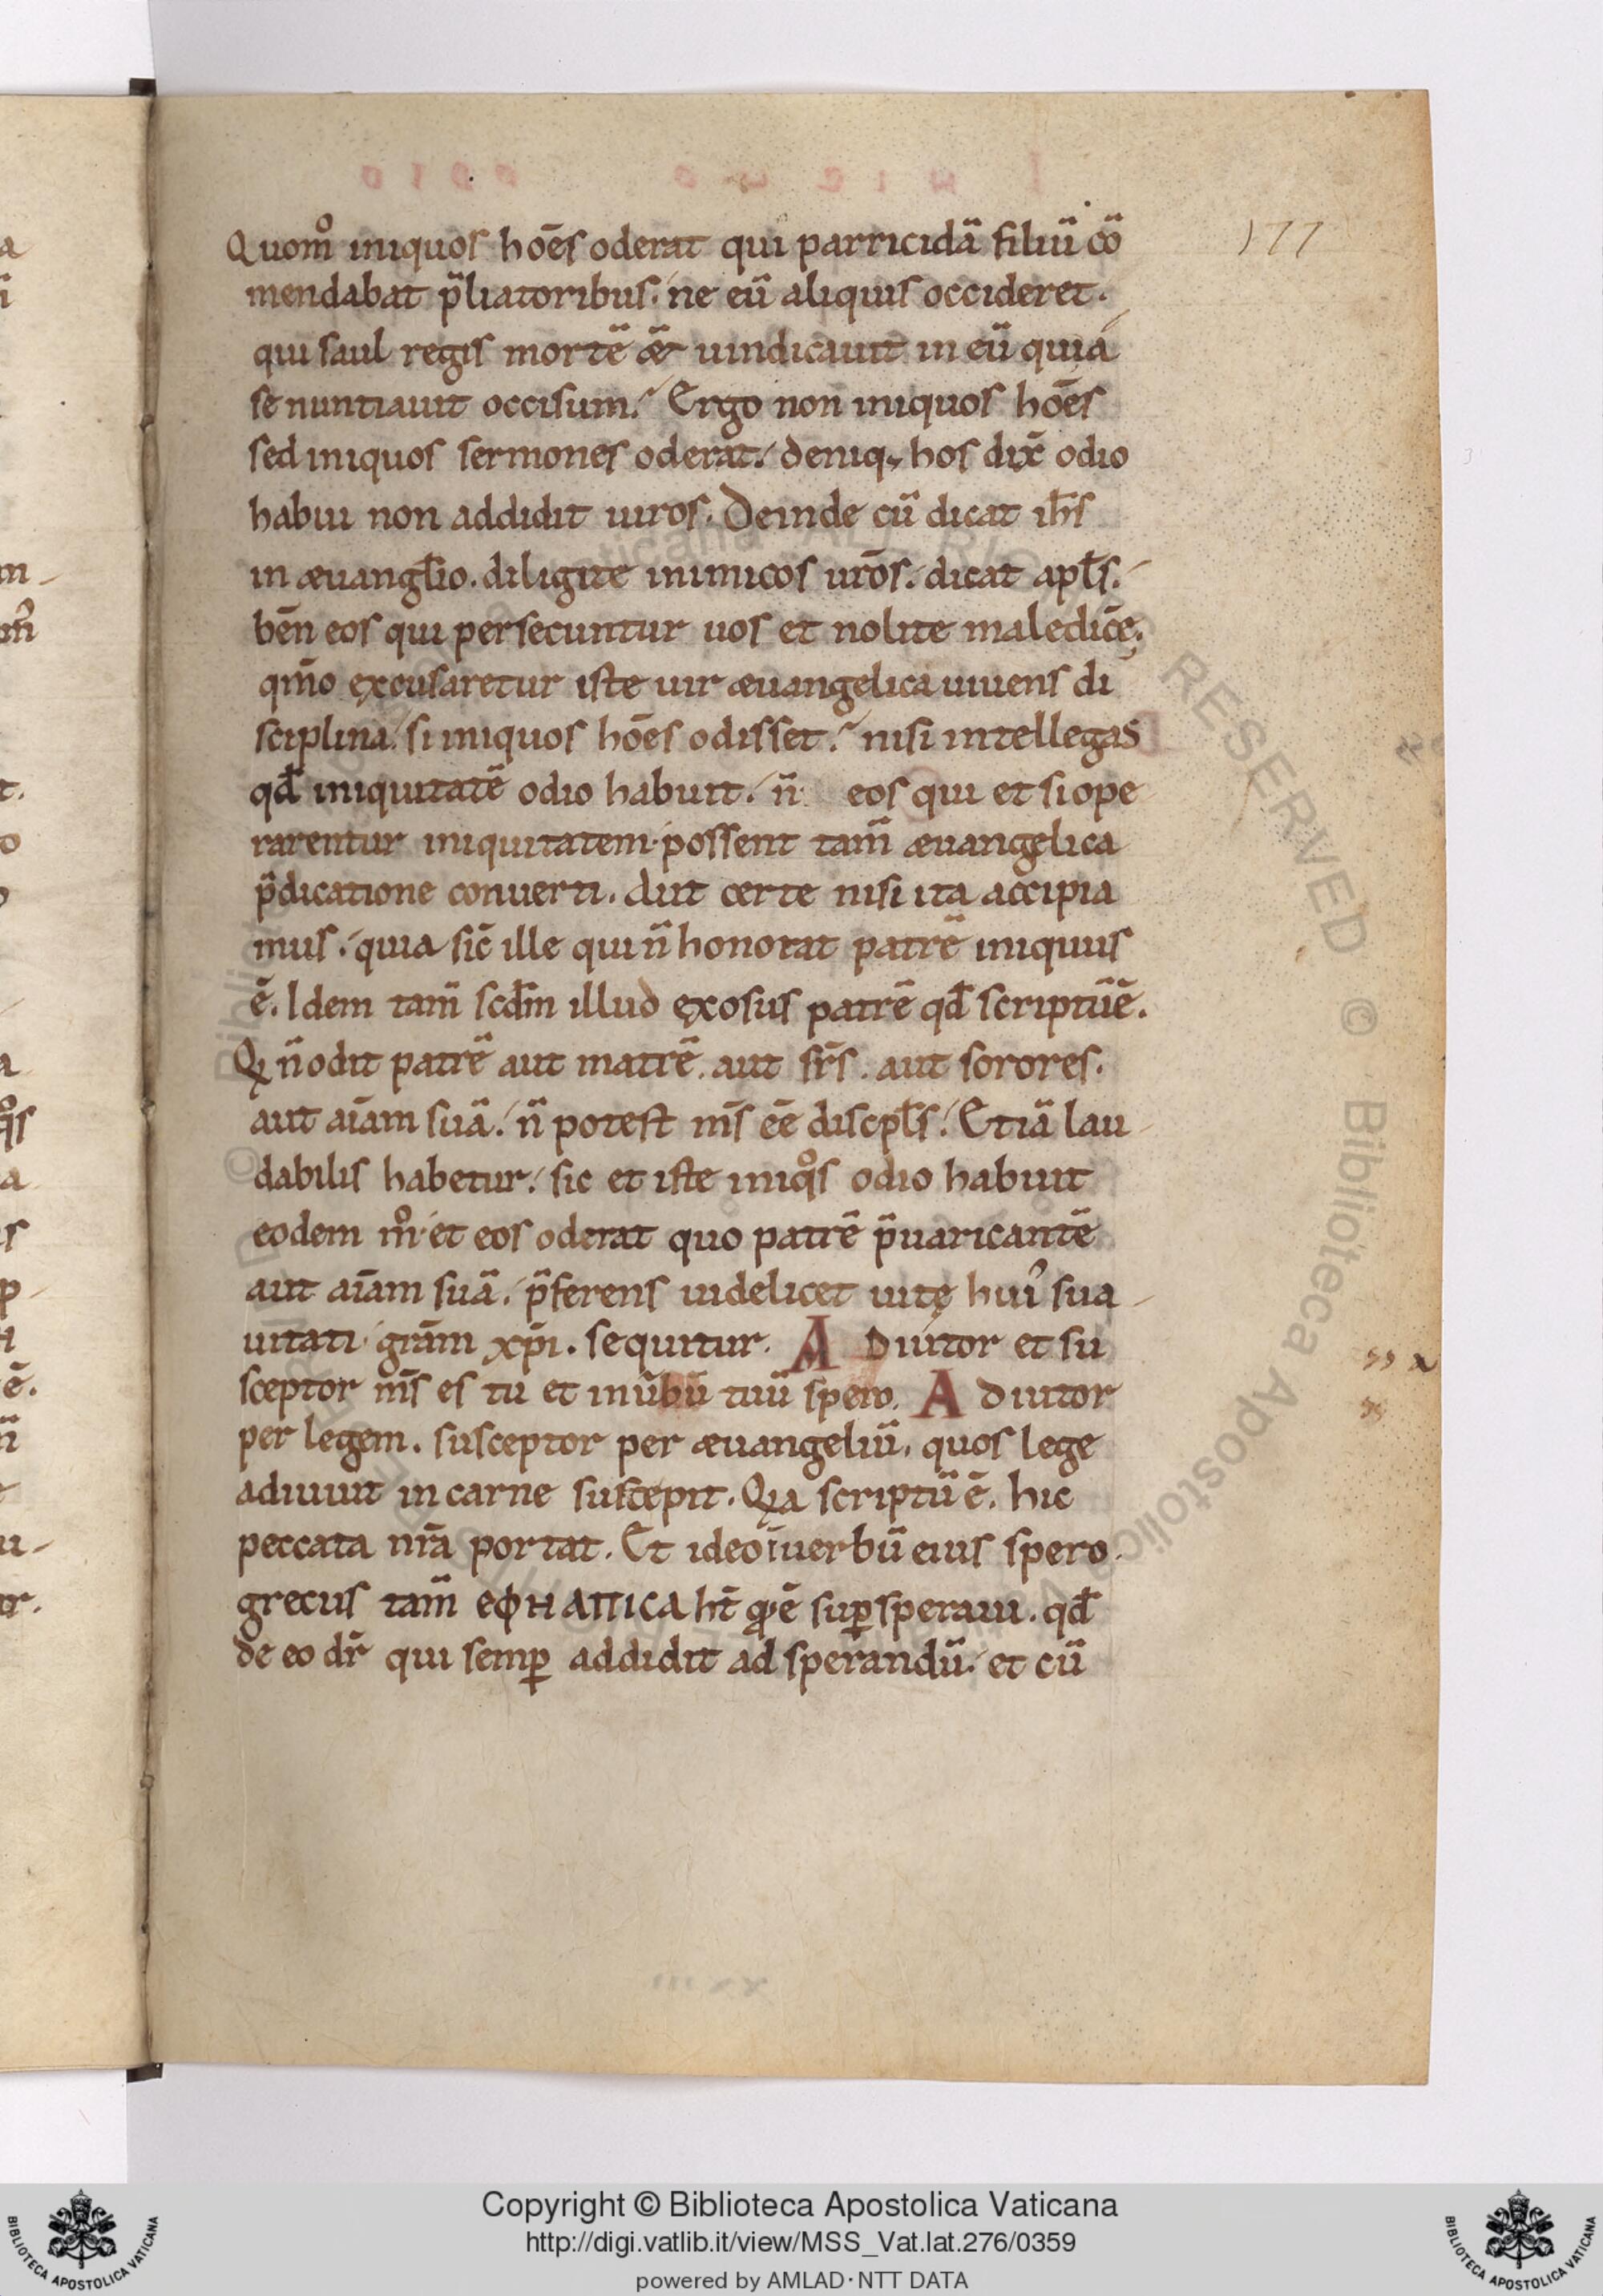 177
Quom̊ iniquos hoēs oderat qui parricidā filiū cō
mendabat p̄liatoribus. ne eū aliquis occideret.
qui saul regis mortē æt̄ uindicauit in eū quia
se nuntiauit occisum. Ergo non iniquos hoēs
sed iniquos sermones oderat. deniq; hos dix̄ odio
habui non addidit uiros. Deinde cū dicat ih̄s
in æuangl̄io. diligite inimicos ur̄os. dicat apl̄s.
bēn eos qui persecuntur uos et nolite maledicē.
qm̄o excusaretur iste uir æuangelica uiuens di
sciplina. si iniquos hoēs odisset. nisi intellegas
qd̄ iniquitatē odio habuit. n̄ eos qui et si ope
rarentur iniquitatem. possent tam̄ æuangelica
p̄dicatione conuerti. Aut certe nisi ita accipia
mus. quia sic̄ ille qui n̄ honorat patrē iniquus
ē. Idem tam̄ scdm̄ illud exosus patrē qd̄ scriptū ē.
Qi n̄ odit patrē aut matrē. aut fr̄s. aut sorores.
aut aīam suā. n̄ potest m̄s eē discpl̄s. Etiā lau
dabilis habetur. sic et iste iniqos odio habuit
eodem m̊. et eos oderat quo patrē p̄uaricantē
aut aīam suā. p̄ferens uidelicet uitę hui᾽ sua
uitati grām xp̄i. sequitur. ADiutor et su
sceptor m̄s es tu et in ūbū tuū spero. Adiutor
per legem. susceptor per æuangeliū. quos lege
adiuuit in carne suscepit. Qia scriptū ē. hic
peccata nr̄a portat. Et ideo ī uerbū eius spero.
grecus tam̄ ΕΦΗΛΠΙCΑ ht̄ qđ ē suꝑsperaui. qd̄
de eo dr̄ qui semꝑ addidit ad sperandū. et cū
Copyright © Biblioteca Apostolica Vaticana
http://digi.vatlib.it/view/MSS_Vat.lat.276/0359
powered by AMLAD·NTT DATA
BIBLIOTECA APOSTOLICA VATICANA
BIBLIOTECA APOSTOLICA VATICANA